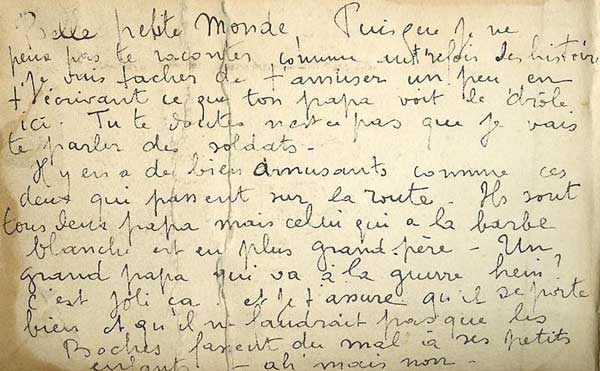 Belle petite Monde, Puisque je ne
peux pas te raconter comme autrefois des histoires
je vais tacher de t'amuser un peu en
t'écrivant ce que ton papa voit de drôle
ici. Tu te doutes n'est ce pas que je vais
te parler des soldats -
Il y en a de bien amusants comme ces
deux qui passent sur la route. Ils sont
tous deux papa mais celui qui a la barbe
blanche est en plus grand père - Un
grand papa qui va à la guerre hein?
C'est joli ça! et je t'assure qu'il se porte
bien et qu'il ne faudrait pas que les
Boches fassent du mal à ses petits
enfants - ah mais non -